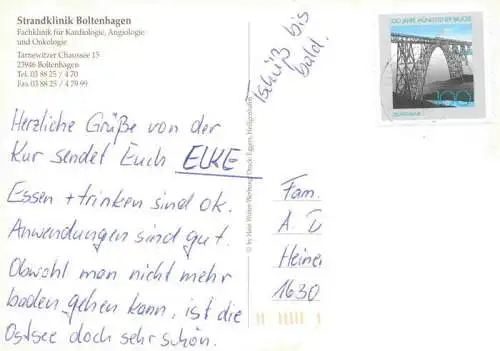 Strandklinik Boltenhagen
Fachklinik für Kardiologie, Angiologie
und Onkologie
Tarnewitzer Chaussee 15
23946 Boltenhagen
Tel. 03 88 25 / 4 70
Fax 03 88 25 / 4 79 99
Tschüß bis
bald.
100 JAHRE MÜNGSTENER BRÜCKE
100
DEUTSCHLAND
Herzliche Grüße von der
Kur sendet Euch ELKE
Essen + trinken sind ok.
Anwendungen sind gut.
Obwohl man nicht mehr
baden gehen kann, ist die
Ostsee doch sehr schön.
© by Heinr. Werbung Druck Eggers, Heiligenhafen
Fam.
A. D
Heiner
1630